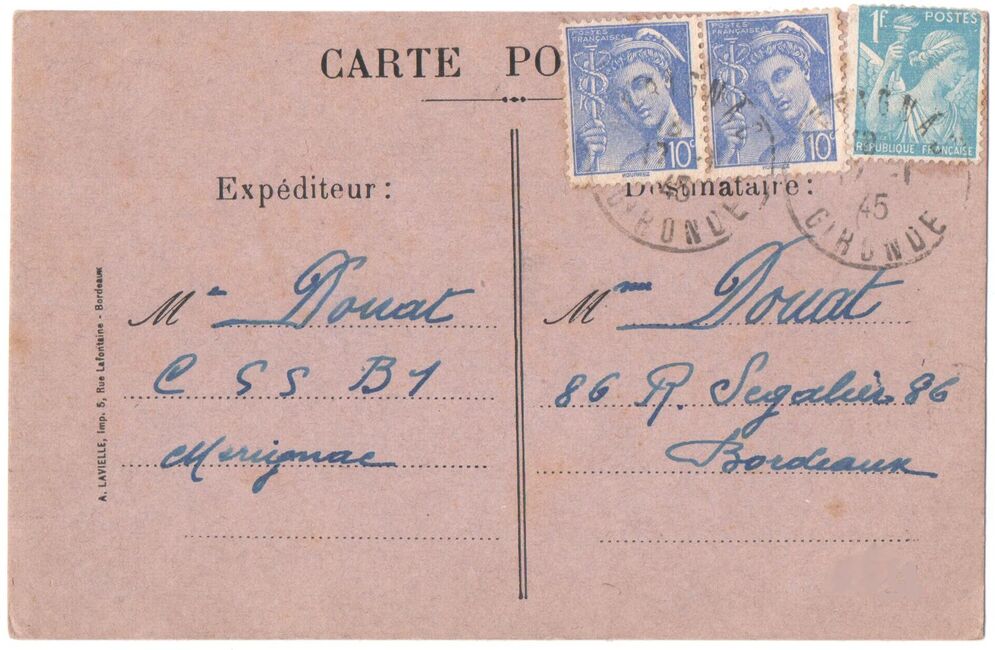 CARTE PO
POSTES FRANÇAISES
10c
POSTES FRANÇAISES
10c
1F. POSTES
RÉPUBLIQUE FRANÇAISE
45
GIRONDE
45
GIRONDE
Expéditeur :
Mr Douat
C S S B1
Merignac
Destinataire :
Mme Douat
86 R. Segalier 86
Bordeaux
A. LAVIELLE, Imp. 5, Rue Lafontaine - Bordeaux